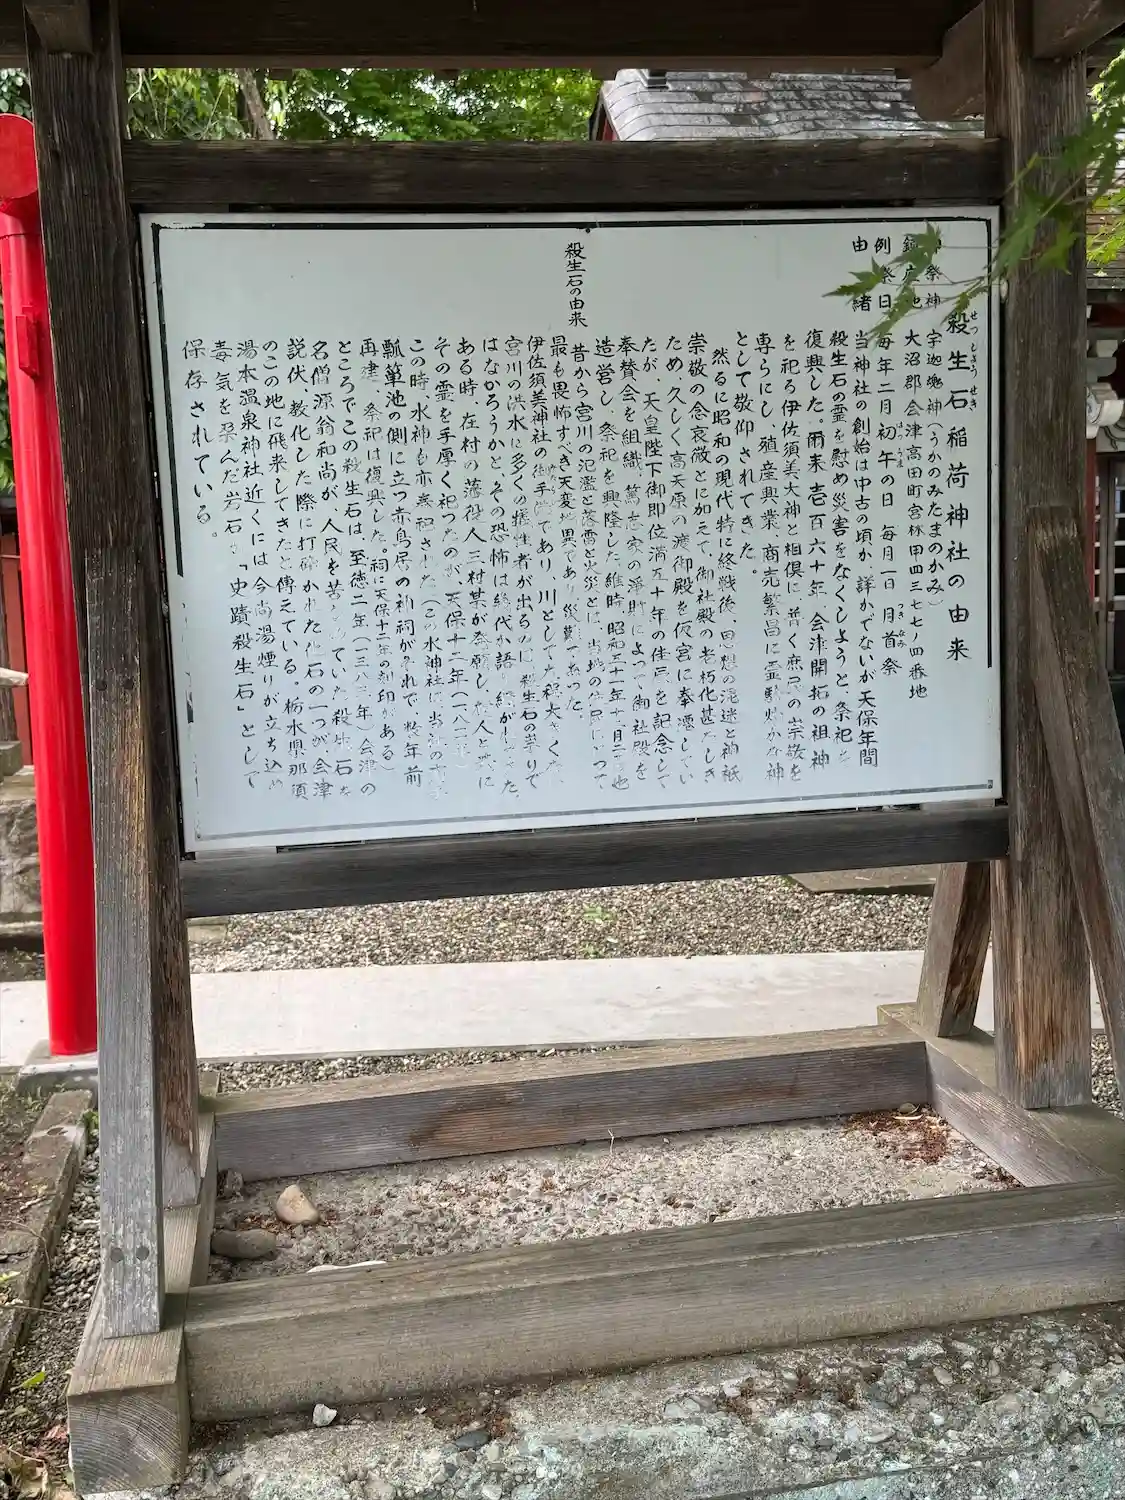 殺生石稲荷神社の由来
せっしょう せき
祭神 宇迦魂神(うかのみたまのかみ)
大沼郡会津高田町宮林甲四三七七ノ四番地
例祭日 毎年二月初午の日 毎月一日 月首祭
はつ うま
つき なみ
由緒 当神社の創始は中古の頃か、詳かでないが天保年間
殺生石の霊を慰め災害をなくしようと、祭祀を
復興した。爾来、壱百六十年、会津開拓の祖神
を祀る伊佐須美大神と相倶に普く庶民の崇敬を
専らにし、殖産興業、商売繁昌に霊験灼かな神
として敬仰されてきた。
然るに昭和の現代特に終戦後、思想の混迷と神祇
崇敬の念衰微とに加えて、御社殿の老朽化甚だしき
ため、久しく高天原の渡御殿を仮宮に奉遷してい
たが、天皇陛下御即位満五十年の佳辰を記念して
奉賛会を組織、篤志家の浄財によって御社殿を
造営し、祭祀を興隆した。維時、昭和五十一年十一月二 也
殺生石の由来
昔から宮川の氾濫と落雷と火災とは、当地の住民にとって
最も畏怖すべき天変地異であり災難であった。
伊佐須美神社の御手洗であり、川として 程大きく
宮川の洪水に多くの犠牲者が出るのは、殺生石の祟りで
はなかろうかと、その恐怖は幾代か語り継がれてきた。
ある時、在村の藩役人三村某が発願し、 人と共に
その霊を手厚く祀ったのが、天保十二年(一八 )
この時、水神も亦蒸祀された(この水神社は当
瓢箪池の側に立つ赤鳥居の神祠がそれで、数年前
再建、祭祀は復興した。祠に天保十二年の刻印がある)
ところでこの殺生石は、至徳二年(一三八 年)会津の
名僧源翁和尚が、人民を苦しめていた殺生石を
説伏、教化した際に打砕かれた化石の一つが、会津
のこの地に飛来してきたと傳えている。栃木県那須
湯本温泉神社近くには今尚湯煙りが立ち込め
毒気を孕んだ岩石を「史蹟殺生石」として
保存されている。